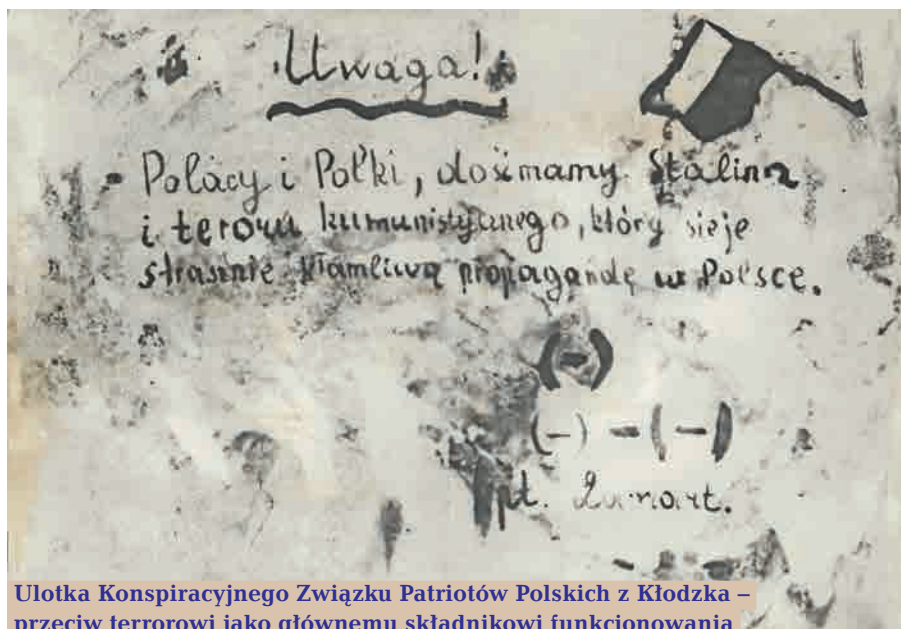 Uwaga!
Polacy i Polki, dość mamy Stalina
i teroru kumunistycznego, który sieje
strasznie kłamliwą propagandę w Polsce.
(-)
(-) - (-)
Ulotka Konspiracyjnego Związku Patriotów Polskich z Kłodzka –
przeciw terrorowi jako głównemu składnikowi funkcjonowania